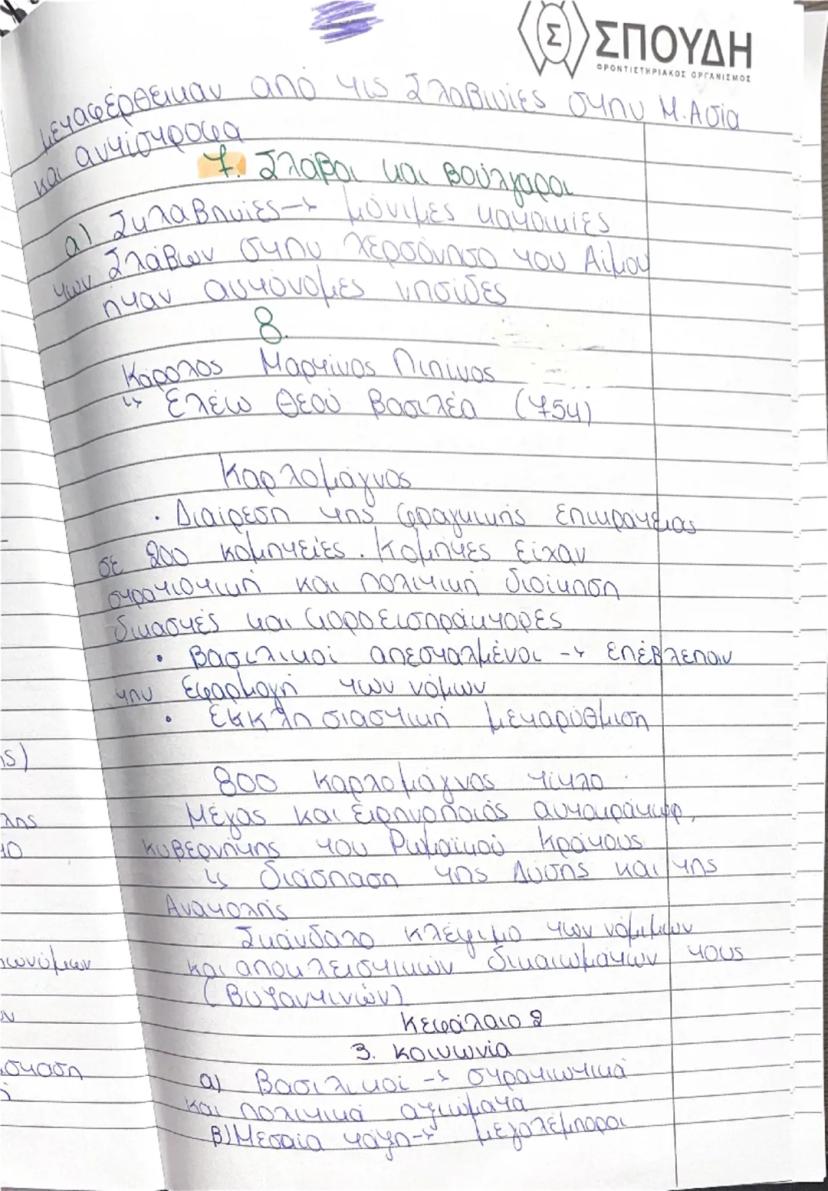 ΣΠΟΥΔΗ
ΦΡΟΝΤΙΣΤΗΡΙΑΚΟΣ ΟΡΓΑΝΙΣΜΟΣ
μεταφέρθεικαν από τις Σλαβινίες στην Μ. Ασία
και αντίστροφα
7. Σλάβοι και Βούλγαροι
α) Σκλαβηνίες → μόνιμες κατοικίες
των Σλάβων στην χερσόνησο του Αίμου
ήταν αυτόνομες νησίδες
8.
Κάρολος Μαρτίνος Πιπίνος
↳ Ελέω Θεού βασιλέα (754)
Καρλομάγνος
· Διαίρεση της φραγκικής επικράτειας
σε 200 κομητείες. Κόμητες είχαν
στρατιοτική και πολιτική διοίκηση
δικαστές και φοροεισπράκτορες
· Βασιλικοί απεσταλμένοι → επέβλεπαν
την εφαρμογή των νόμων
· Εκκλησιαστική μεταρύθμιση
800 Καρλομάγνος τίτλο
Μέγας και ειρηνοποιός αυτοκράτωρ,
κυβερνήτης του Ρωμαϊκού Κράτους
↳ διάσπαση της Δύσης και της
Ανατολής
Σκάνδαλο κλέψιμο των νόμιμων
και αποκλειστικών δικαιωμάτων τους
(Βυζαντινών)
Κεφάλαιο 2
3. Κοινωνία
α) Βασιλικοί → στρατιωτικά
και πολιτικά αξιώματα
β) Μεσαία τάξη → μεγαλέμποροι